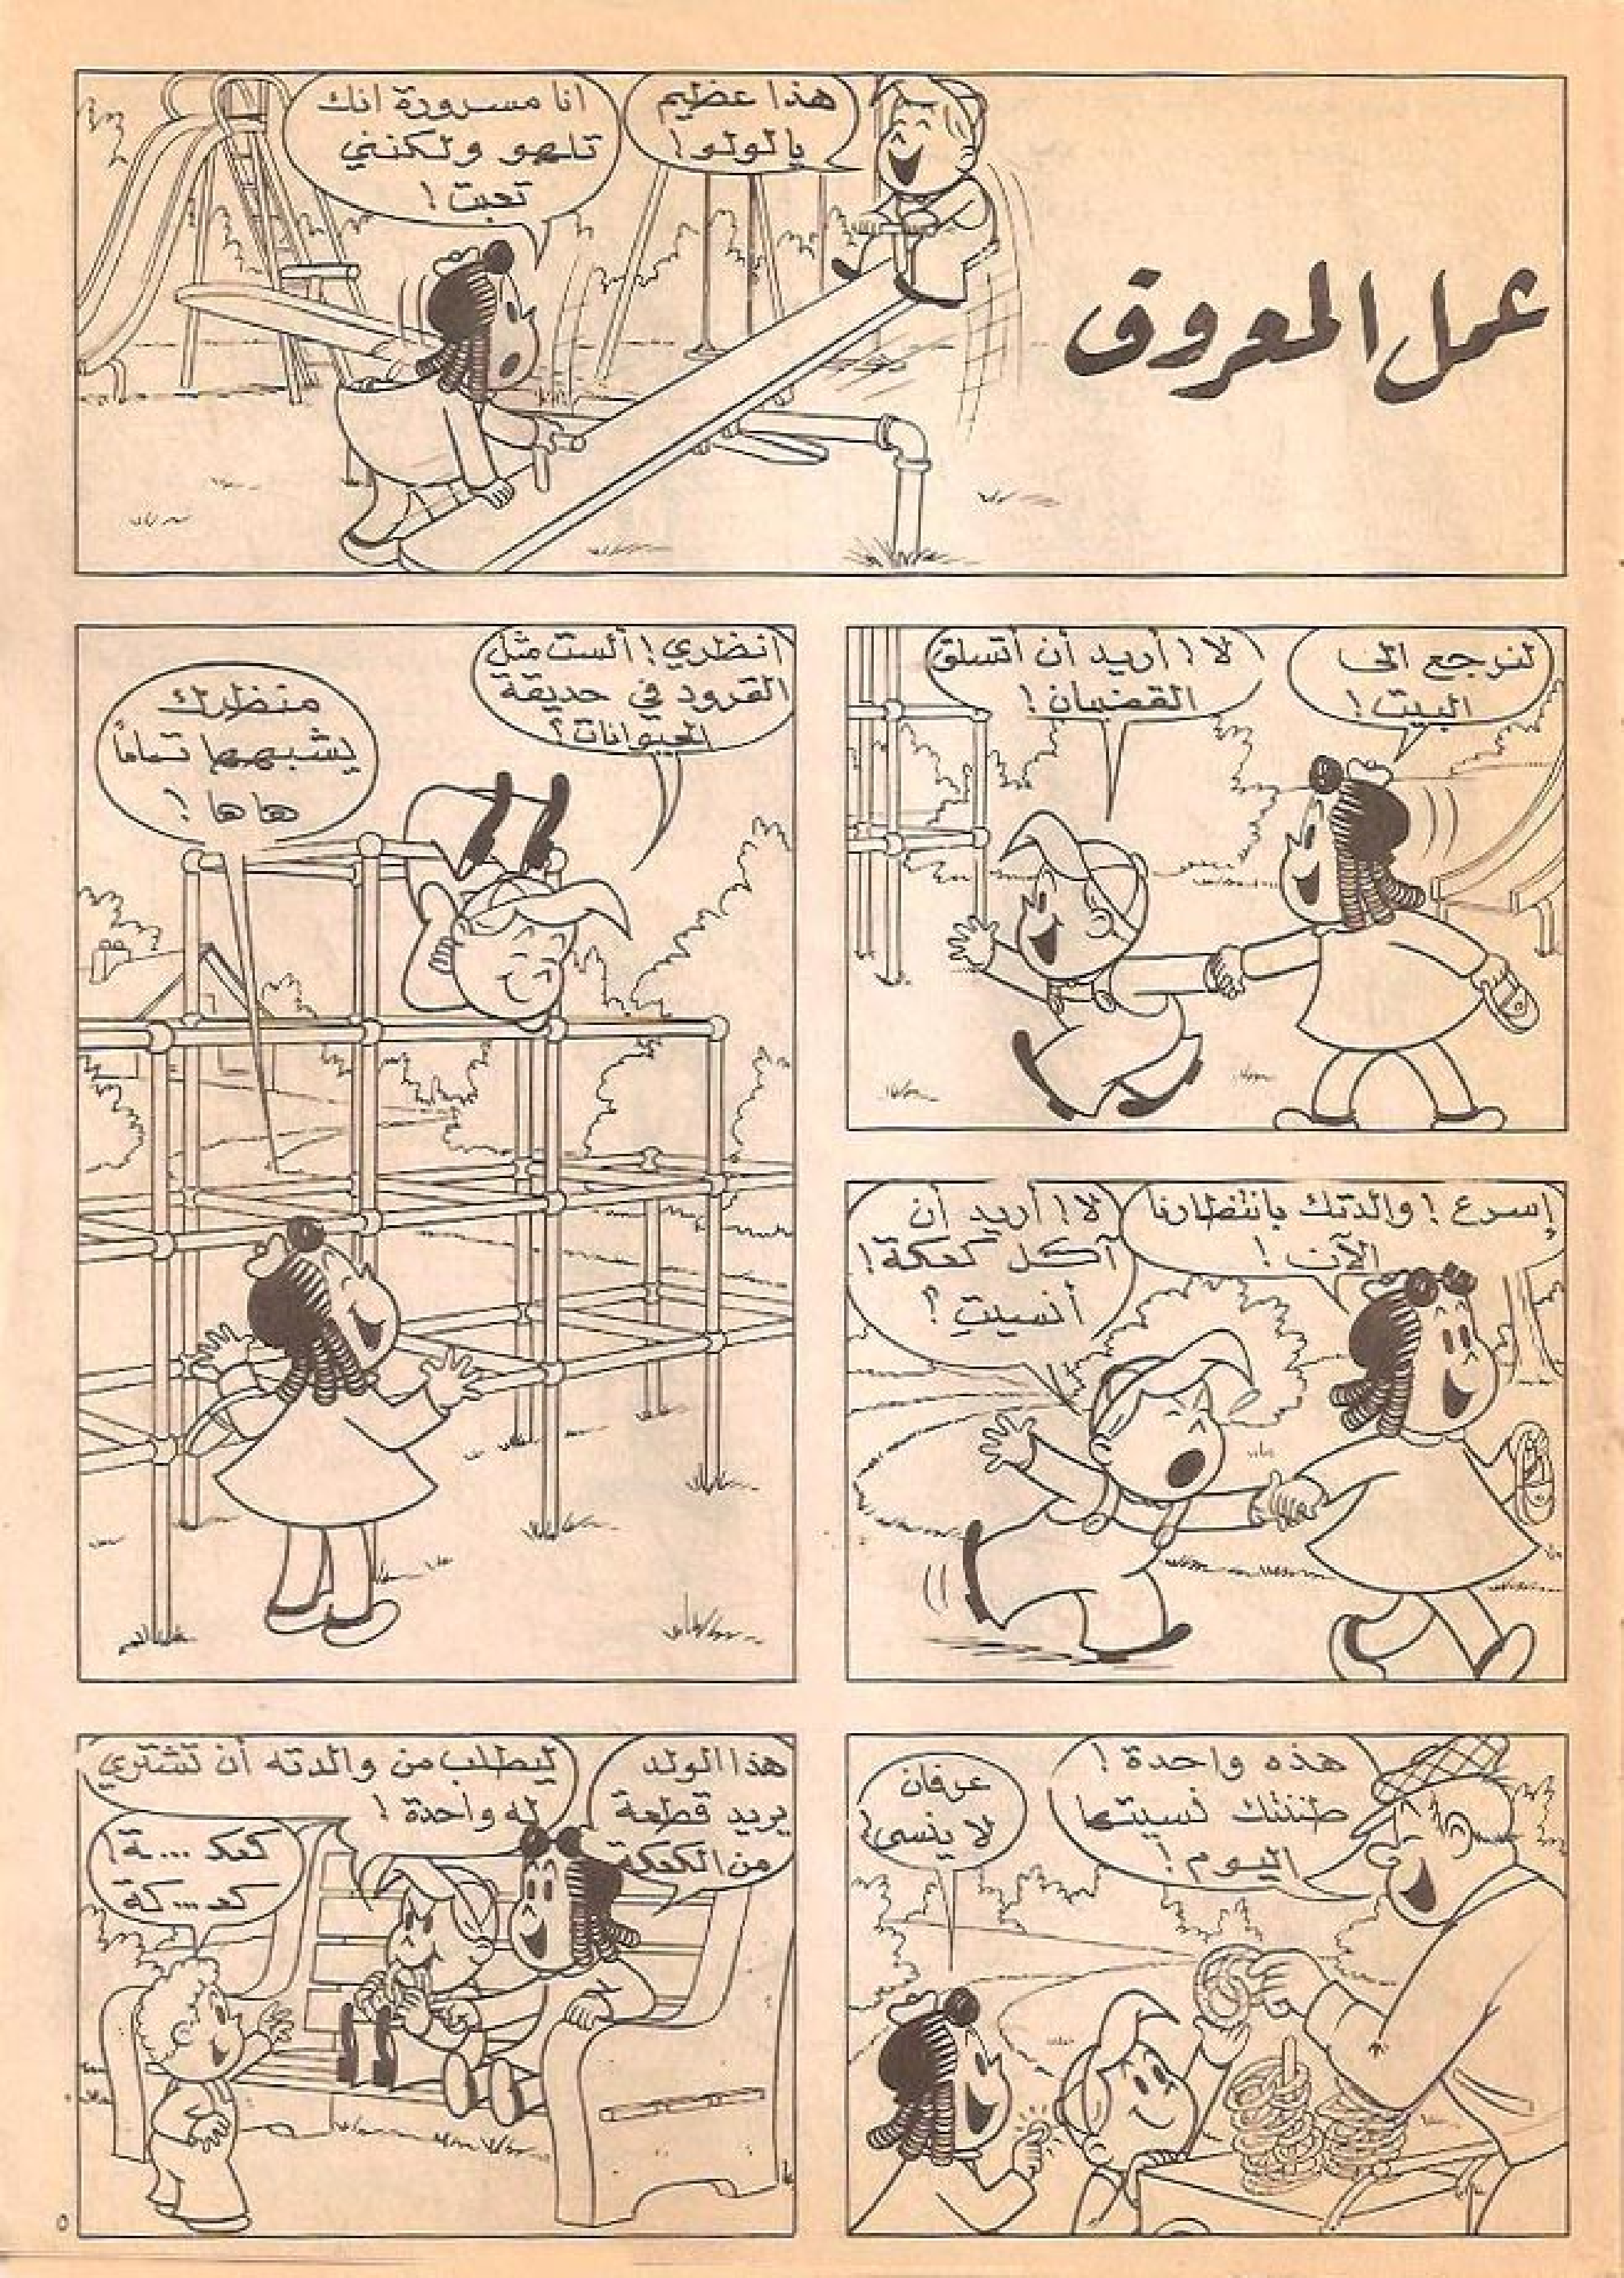 عمل المعروف
هذا عظيم
يا لولو!
انا مسرورة انك
تلهو ولكنني
تعبت!
لنرجع الى
البيت!
لا! أريد أن أتسلق
القضبان!
انظري! ألست مثل
القرود في حديقة
الحيوانات؟
منظرك
يشبهها تماماً
ها ها!
إسرع! والدتك بانتظارنا
الآن!
لا! أريد أن
آكل كعكة!
أنسيتِ؟
هذه واحدة!
ظننتك نسيتها
اليوم!
عرفان
لا ينسى!
هذا الولد
يريد قطعة
من الكعكة
ليطلب من والدته أن تشتري
له واحدة!
كعكـ ... ـة!
كعـ ... ـكة
٥